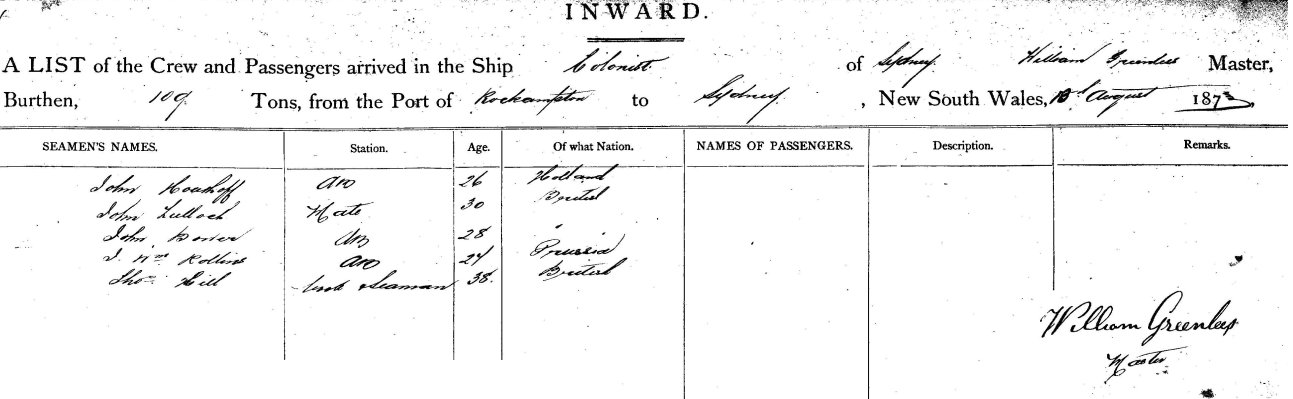 INWARD.
A LIST of the Crew and Passengers arrived in the Ship Colonist of Sydney William Greenlees Master,
Burthen, 109 Tons, from the Port of Rockhampton to Sydney, New South Wales, August 187
SEAMEN'S NAMES. Station. Age. Of what Nation. NAMES OF PASSENGERS. Description. Remarks.
John AB 26 Holland
John Tulloch Mate 30 British
John AB 28 "
J. Wm Rollins AB 24 Prussia
Thos Hill Cook & Seaman 38. British
William Greenlees
Master